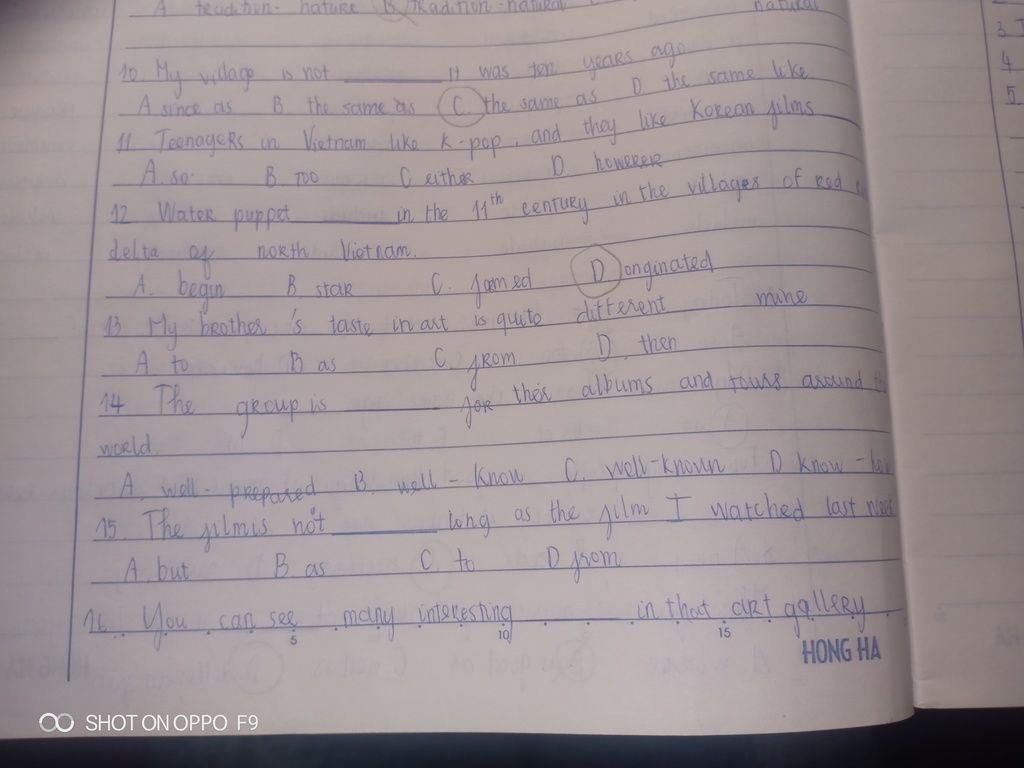 A tradition- nature B tradition-natural
natural
10. My village is not ________ it was ten years ago
A since as B the same as C. the same as D the same like
11 Teenagers in Vietnam like K-pop, and they like Korean films
A. so. B. Too C either D. however
12 Water puppet ________ in the 11th century in the villages of Red
delta of north Vietnam.
A. begin B. star C. formed D originated
13 My brother 's taste in art is quite different mine
A. to B as C. from D. then
14 The group is ________ for their albums and tours around
world
A. well- prepared B. well - know C. well-known D know -
15. The film is not ________ long as the film I watched last
A. but B. as C. to D from
16. You can see many interesting in that art gallery
5 10 15
HONG HA
3.
4
5
SHOT ON OPPO F9